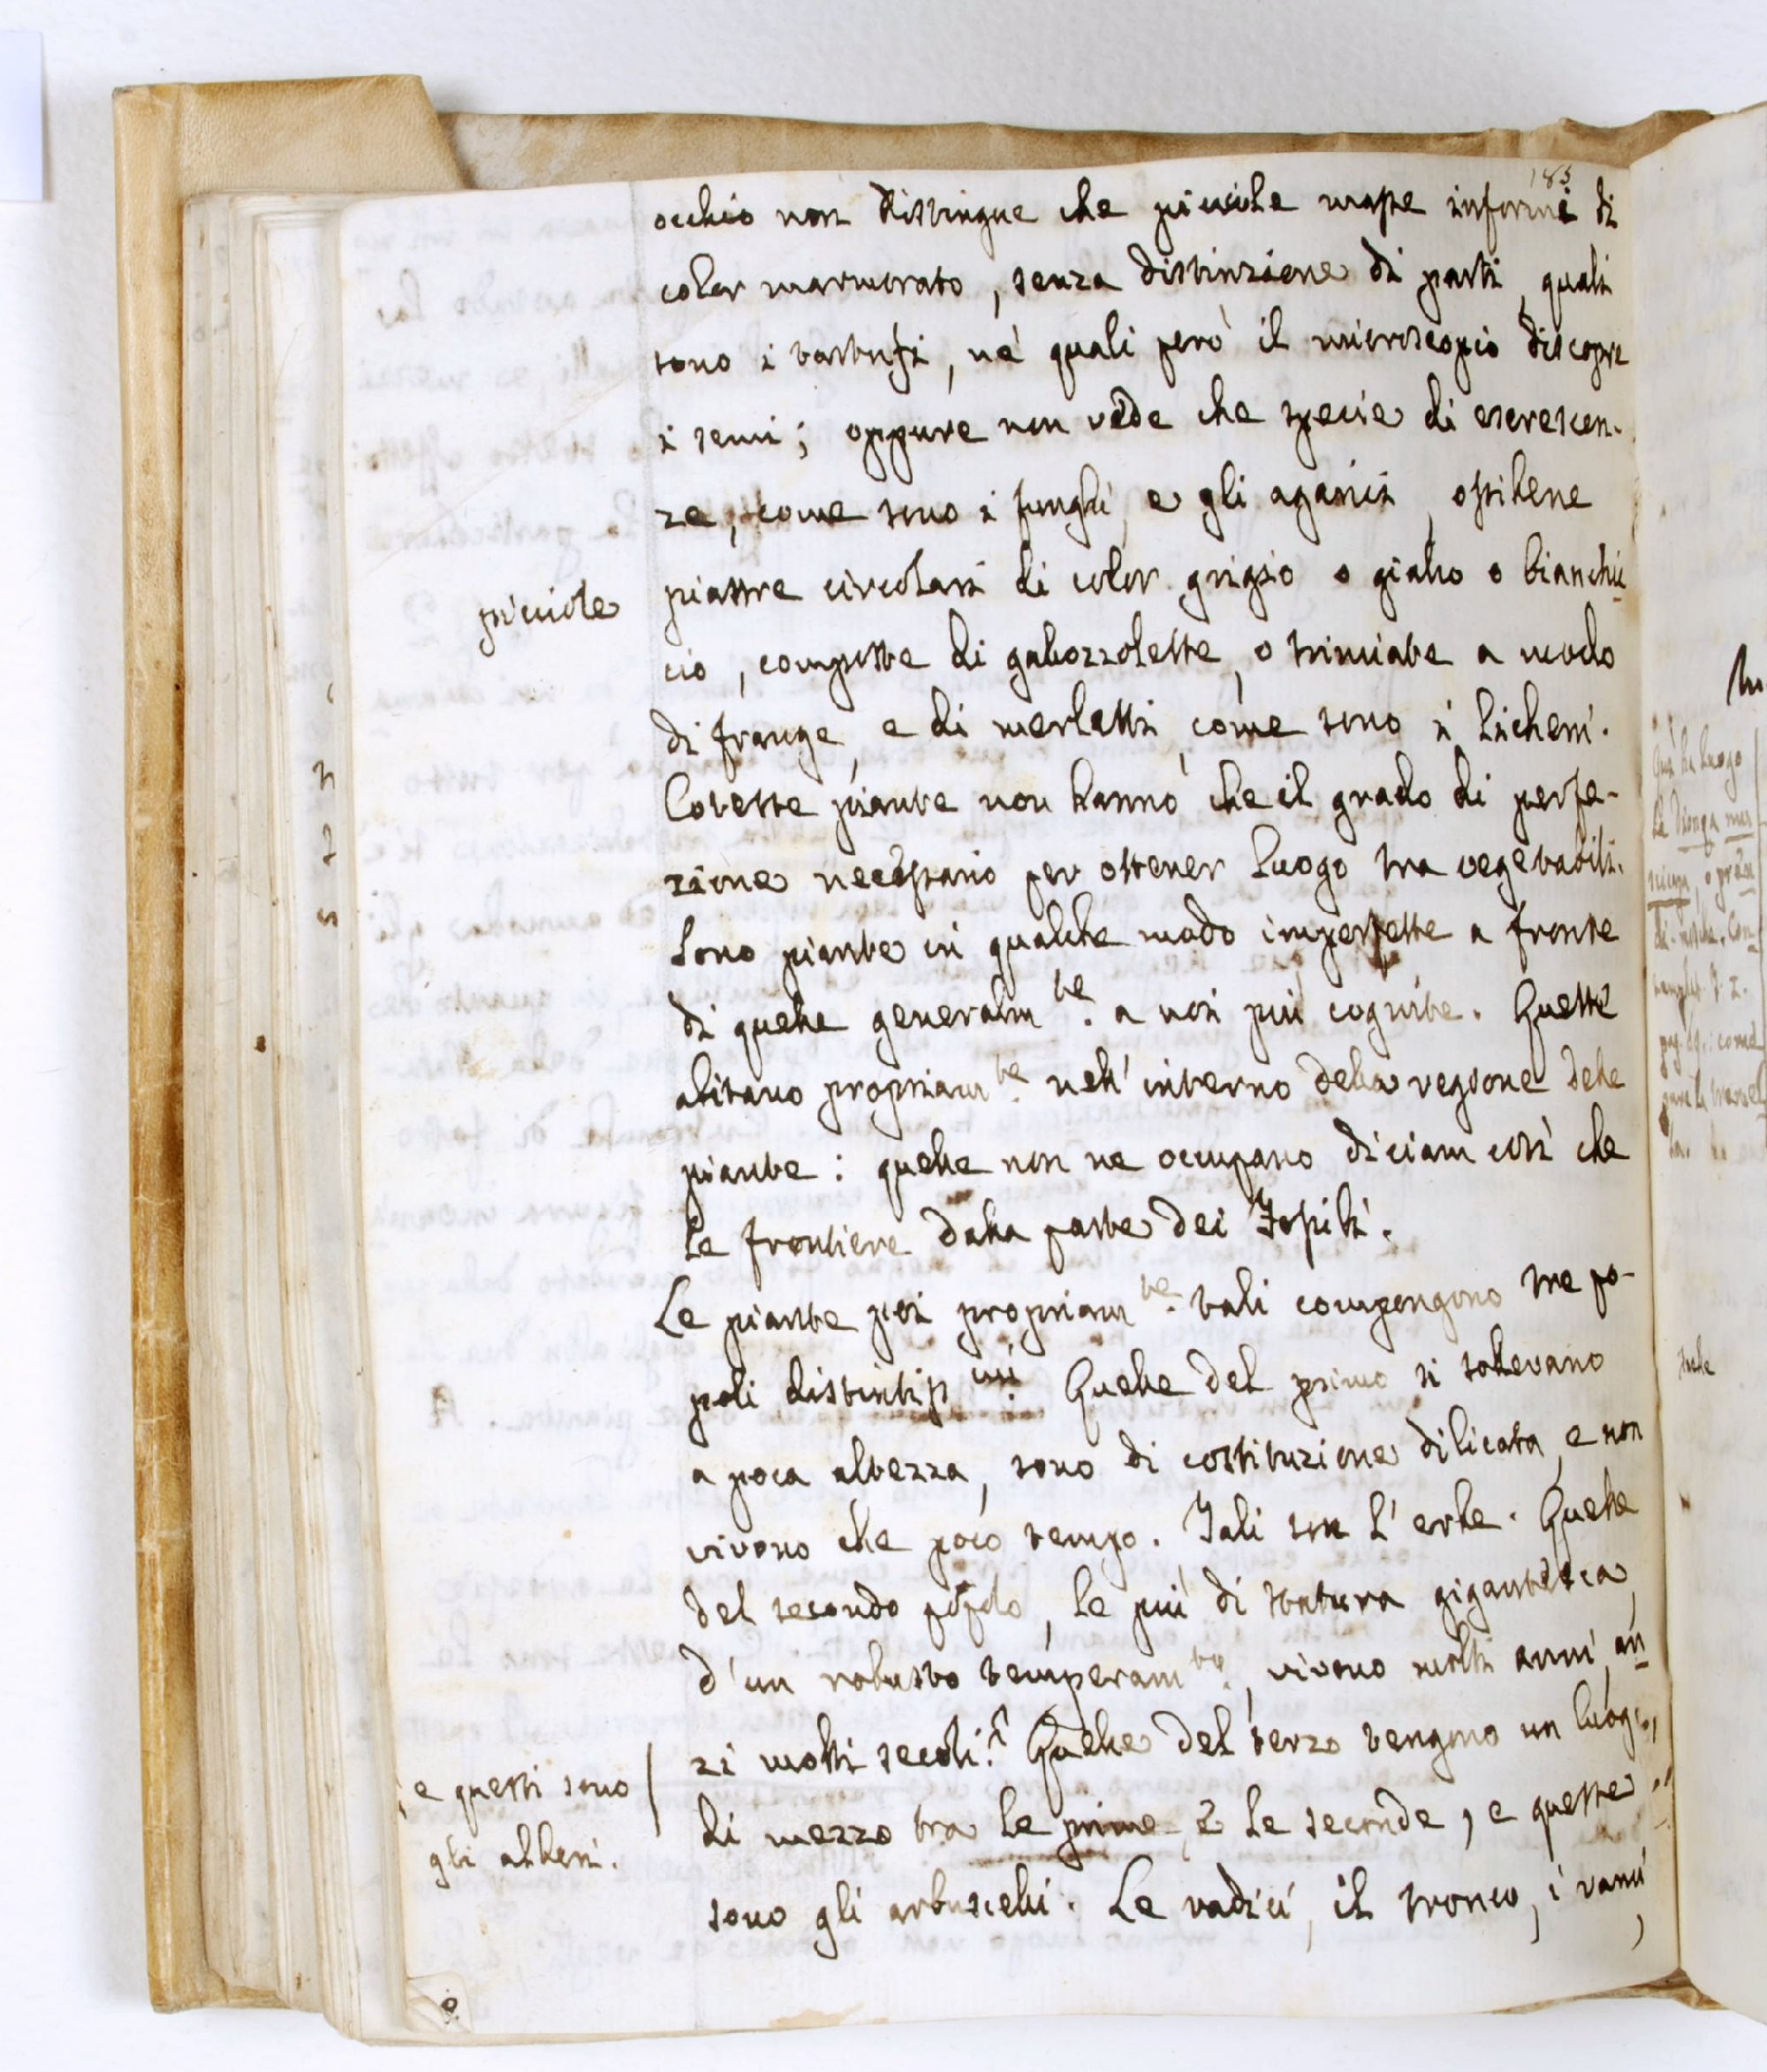 183
occhio non distingue che picciole masse informi di
color marmorato, senza distinzione di parti, quali
sono i tartufi, ne' quali però il microscopio discopre
i semi; oppure non vede che specie di escrescen-
ze, come sono i funghi, e gli agarici, ossivene
piastre circolari di color grigio o giallo o bianchic
picciole
cio, composte di gallozzolette, o trinciate a modo
di frange, e di merletti, come sono i licheni.
Coteste piante non hanno che il grado di perfe-
zione necessario per ottener luogo tra vegetabili.
Sono piante in qualche modo imperfette a fronte
di quelle generalm.te a noi più cognite. Queste
abitano propriam.te nell' interno della regione delle
piante: quelle non ne occupano diciam così che
le frontiere dalla parte dei Fossili.
Le piante poi propriam.te tali compongono tre po-
poli distintiss.mi Quelle del primo si sollevano
a poca altezza, sono di costituzione dilicata, e non
vivono che poco tempo. Tali son l' erbe. Quelle
del secondo popolo, le più di statura gigantesca,
d' un robusto temperam.to, vivono molti anni, an
zi molti secoli. Quelle del terzo tengono un luogo
; e questi sono
gli alberi.
di mezzo tra le prime e le seconde, e queste
sono gli arbuscelli. Le radici, il tronco, i rami,
Quì ha luogo